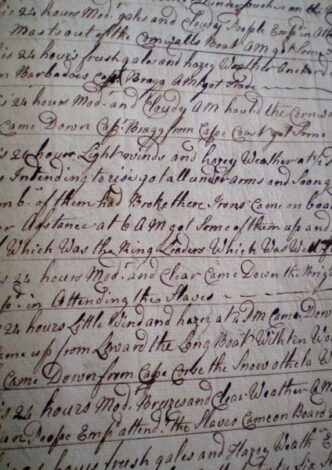 is 24 hours Mod: gales and Cloudy People Emp: in Atten
Masts out of the Cornwalls Boat AM got Some
is 24 hours fresh gales and hazey Weather Anchord
m Barbadoes Capt: Bragg AM got
is 24 hours Mod: and Cloudy AM hauld the Cornwa
Came Down Capt: Bragg from Cape Coast got Some
is 24 hours Light winds and hazey Weather at
s Intending to rise got all under arms and Soon g
mb: of them had Broke there Irons Came on boar
r Assistance at 6 AM got Some of them up and
Which Was the Ring Leaders Which Was
is 24 hours Mod: and Clear Came Down the Brig
Emp: in Attending the Slaves
is 24 hours Little Wind and hazey at 2 PM Came Down
ame up from Leward the Long Boat With ten Wo
Came Down from Cape Corbe the Snow othela W
is 24 hours Mod: Breezes and Clear Weather A
an People Emp: attend: the Slaves Came on Board
is 24 hours fresh gales and Hazey Weath